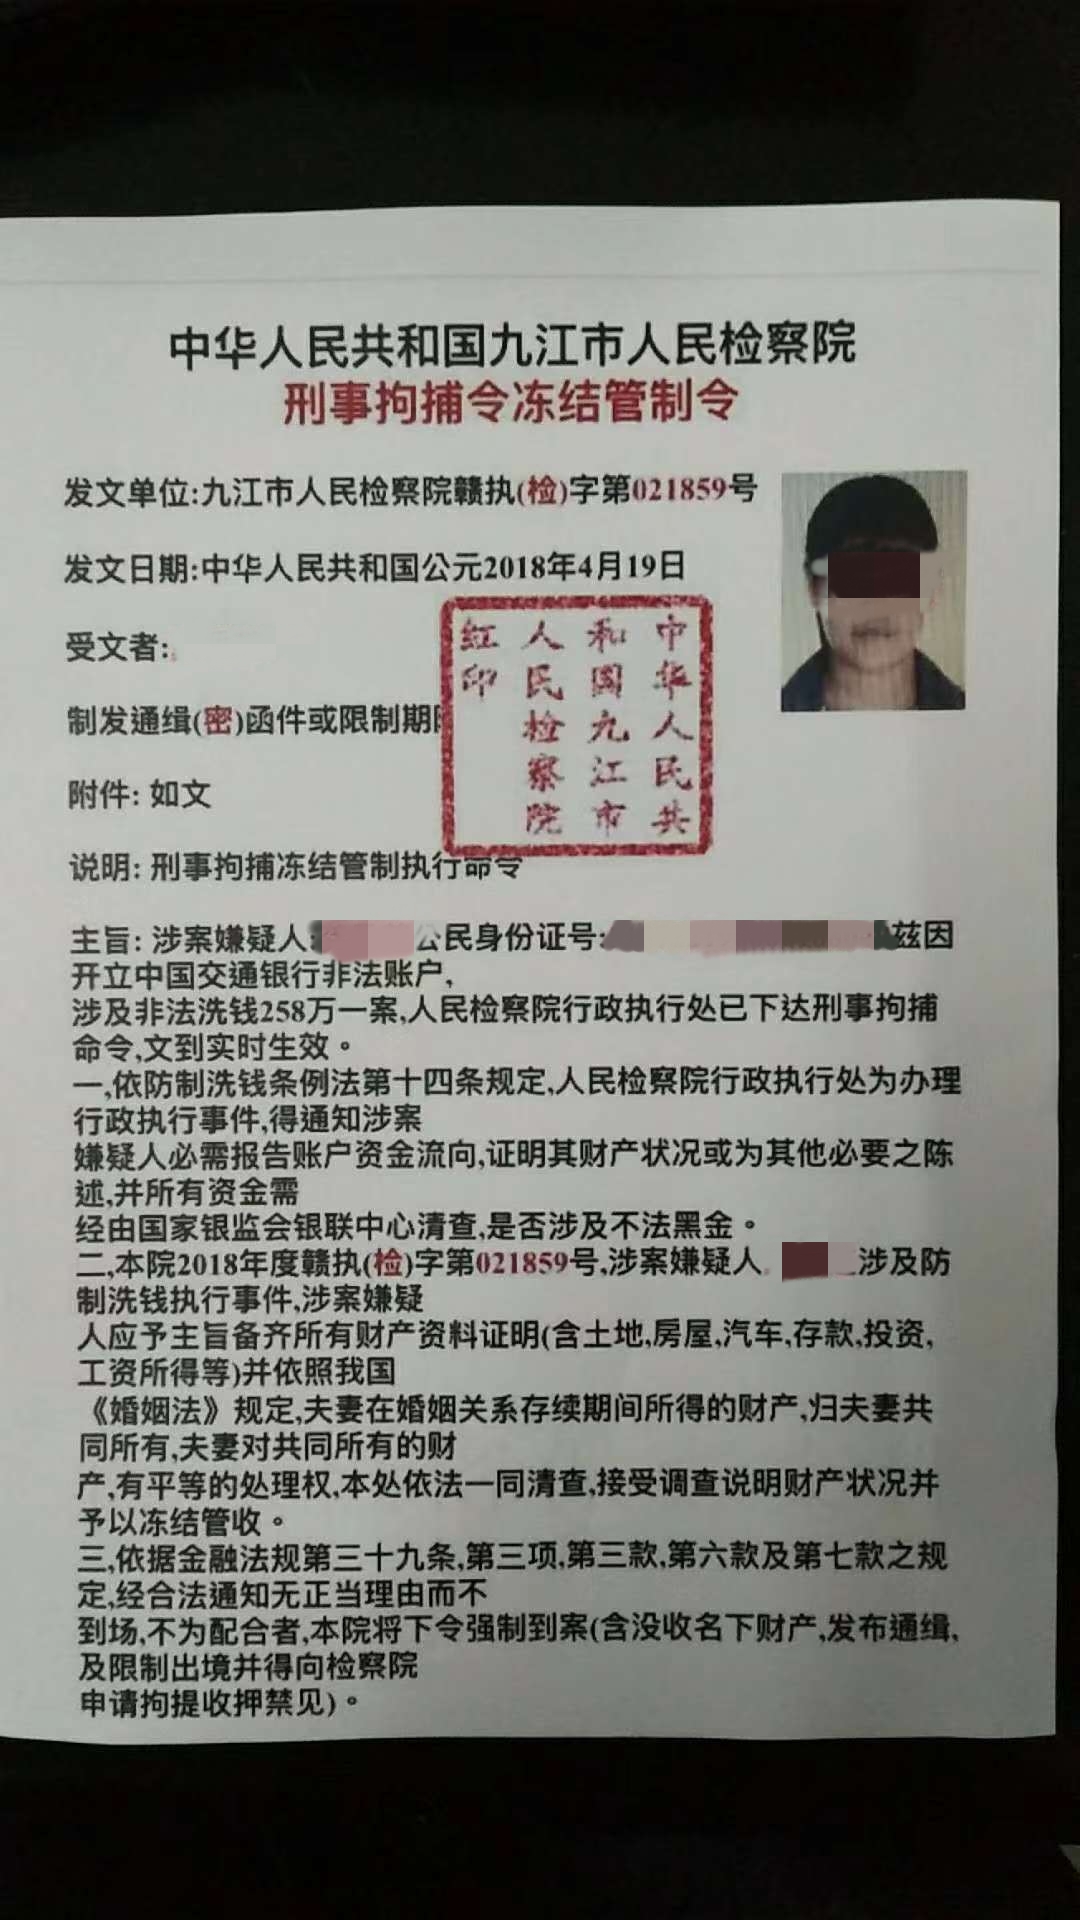 中华人民共和国九江市人民检察院
刑事拘捕令冻结管制令
发文单位:九江市人民检察院赣执(检)字第021859号
发文日期:中华人民共和国公元2018年4月19日
受文者:
制发通缉(密)函件或限制期
中华人民共
和国九江市
人民检察院
红印
附件: 如文
说明: 刑事拘捕冻结管制执行命令
主旨: 涉案嫌疑人 公民身份证号: 兹因
开立中国交通银行非法账户,
涉及非法洗钱258万一案,人民检察院行政执行处已下达刑事拘捕
命令,文到实时生效。
一,依防制洗钱条例法第十四条规定,人民检察院行政执行处为办理
行政执行事件,得通知涉案
嫌疑人必需报告账户资金流向,证明其财产状况或为其他必要之陈
述,并所有资金需
经由国家银监会银联中心清查,是否涉及不法黑金。
二,本院2018年度赣执(检)字第021859号,涉案嫌疑人 涉及防
制洗钱执行事件,涉案嫌疑
人应予主旨备齐所有财产资料证明(含土地,房屋,汽车,存款,投资,
工资所得等)并依照我国
《婚姻法》规定,夫妻在婚姻关系存续期间所得的财产,归夫妻共
同所有,夫妻对共同所有的财
产,有平等的处理权,本处依法一同清查,接受调查说明财产状况并
予以冻结管收。
三,依据金融法规第三十九条,第三项,第三款,第六款及第七款之规
定,经合法通知无正当理由而不
到场,不为配合者,本院将下令强制到案(含没收名下财产,发布通缉,
及限制出境并得向检察院
申请拘提收押禁见)。